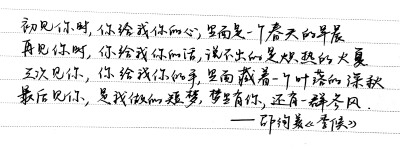 初见你时,你给我你的心,里面是一个春天的早晨
再见你时,你给我你的话,说不出的是炽热的火夏
三次见你,你给我你的手,里面藏着一个叶落的深秋
最后见你,是我做的短梦,梦里有你,还有一群冬风.
——邵洵美《季候》